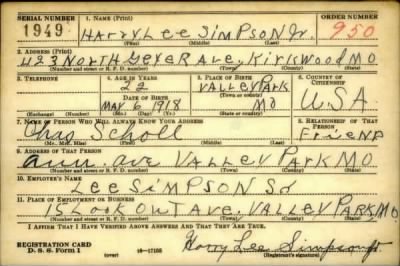 SERIAL NUMBER 1. NAME (Print) ORDER NUMBER
1949 HARRY LEE SIMPSON Jr. 950
(First) (Middle) (Last)
2. ADDRESS (Print)
423 NORTH GEYER AVE, KIRKWOOD MO
(Number and street or R. F. D. number) (Town) (County) (State)
3. TELEPHONE 4. AGE IN YEARS 5. PLACE OF BIRTH 6. COUNTRY OF CITIZENSHIP
22 VALLEY PARK
DATE OF BIRTH (Town or county)
MAY 6 1918 MO U.S.A.
(Exchange) (Number) (Mo.) (Day) (Yr.) (State or country)
7. NAME OF PERSON WHO WILL ALWAYS KNOW YOUR ADDRESS 8. RELATIONSHIP OF THAT PERSON
Chas Scholl FRIEND
(Mr., Mrs., Miss) (First) (Middle) (Last)
9. ADDRESS OF THAT PERSON
Ann. ave VALLEY PARK MO.
(Number and street or R. F. D. number) (Town) (County) (State)
10. EMPLOYER'S NAME
LEE SIMPSON Sr
11. PLACE OF EMPLOYMENT OR BUSINESS
15 LOOK OUT AVE, VALLEY PARK MO
(Number and street or R. F. D. number) (Town) (County) (State)
I AFFIRM THAT I HAVE VERIFIED ABOVE ANSWERS AND THAT THEY ARE TRUE.
REGISTRATION CARD
D. S. S. Form 1 (over) 16—17105 Harry Lee Simpson Jr
(Registrant's signature)